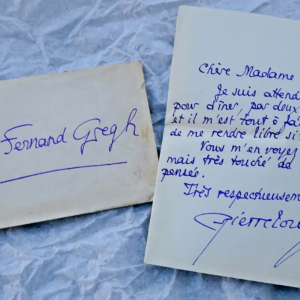 Fernand Gregh
Chère Madame
Je suis attend
pour dîner, par deux
et il m'est tout à fa
de me rendre libre si
Vous m'en voyez
mais très touché d
pensée.
Très respectueusem